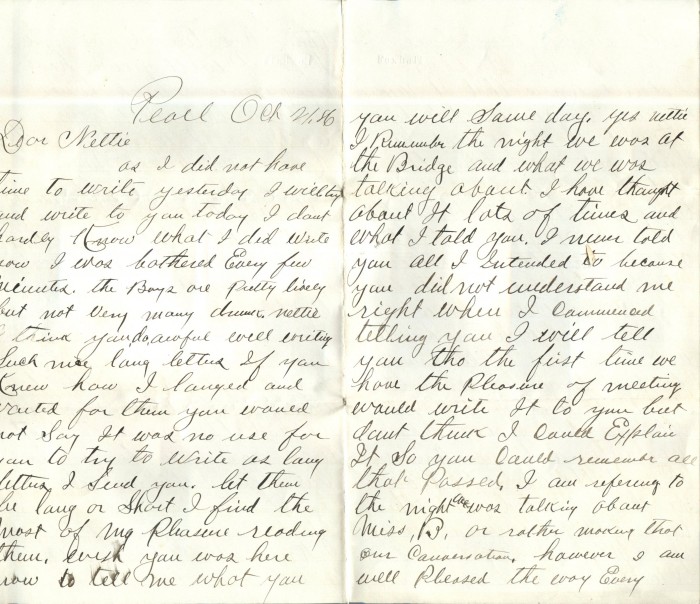 Pearl Oct 21, 86
Dear Nettie
as I did not have
time to write yesterday I will try
and write to you today I dont
hardly Know what I did write
now I was bothered Every few
minutes. the Boys are Pretty lively
but not Very many drunk. nettie
I think you do awful well writing
Such nice long letters If you
Knew how I longed and
waited for them you would
not Say It was no use for
you to try to Write as long
letters I Send you. let them
be long or Short I find the
most of my Pleasure reading
them. wish you was here
now to tell me what you
you will Some day. yes nettie
I Remember the night we was at
the Bridge and what we was
talking about. I have thought
about It lots of times and
what I told you. I never told
you all I Intended to because
you did not understand me
right when I Commenced
telling you I will tell
you tho the first time we
have the Pleasure of meeting
would write It to you but
dont think I Could Explain
It So you Could remember all
that Passed. I am refering to
the night we was talking about
Miss, B, or rather making that
our Conversation. however I am
well Pleased the way Every